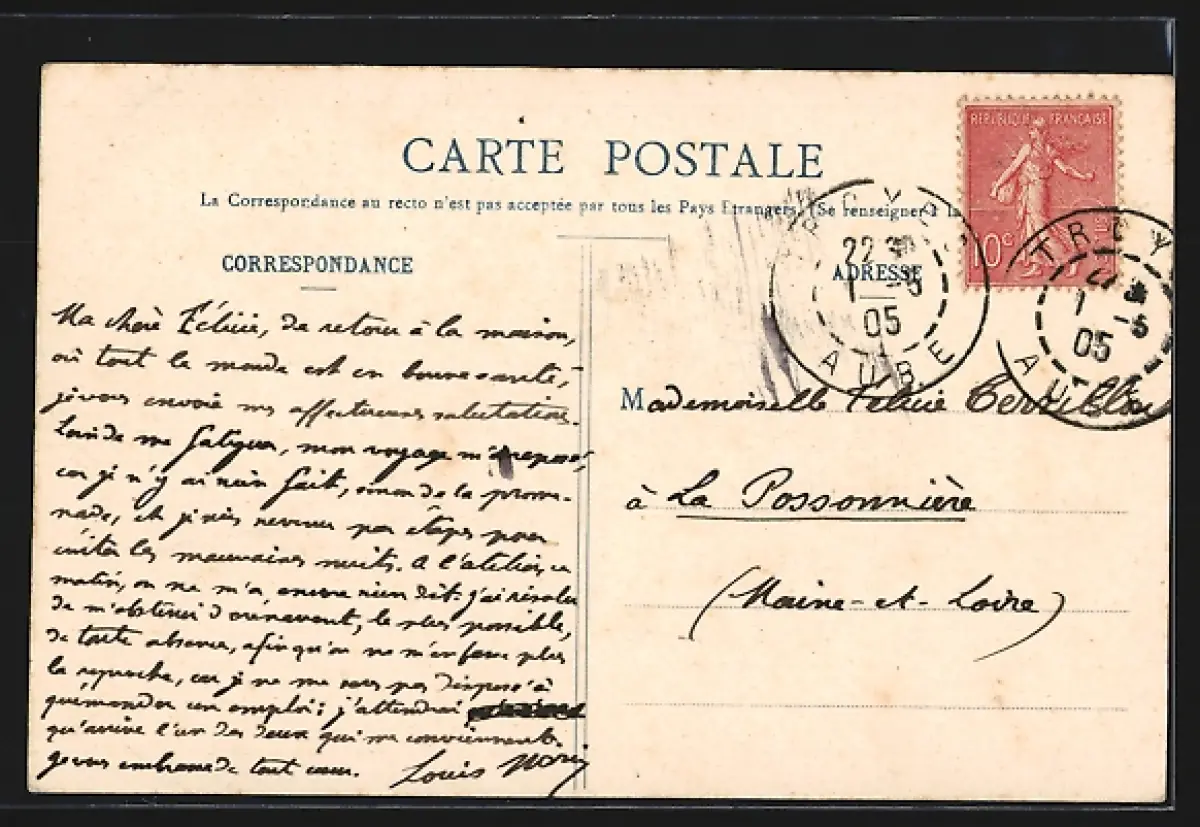 CARTE POSTALE
La Correspondance au recto n'est pas acceptée par tous les Pays Etrangers (Se renseigner à la
CORRESPONDANCE
ADRESSE
REPUBLIQUE FRANÇAISE
10 c
TROYES
22
1 -5
05
AUBE
TROY
1 -5
05
AU
Ma chère Félicie, de retour à la maison,
où tout le monde est en bonne santé,
je vous envoie mes affectueuses salutations.
Loin de me fatiguer, mon voyage m'a reposé,
car je n'y ai rien fait, sinon de la prome-
nade, et je suis revenu par étapes pour
éviter les mauvaises nuits. A l'atelier, ce
matin, on ne m'a encore rien dit. j'ai résolu
de m'abstenir dorénavant, le plus possible,
de toute absence, afin qu'on ne m'en fasse plus
le reproche, car je ne me sens pas disposé à
quémander un emploi; j'attendrai
qu'arrive l'un des deux qui me conviennent.
Je vous embrasse de tout cœur. Louis
Mademoiselle Félicie
à La Possonnière
(Maine-et-Loire)